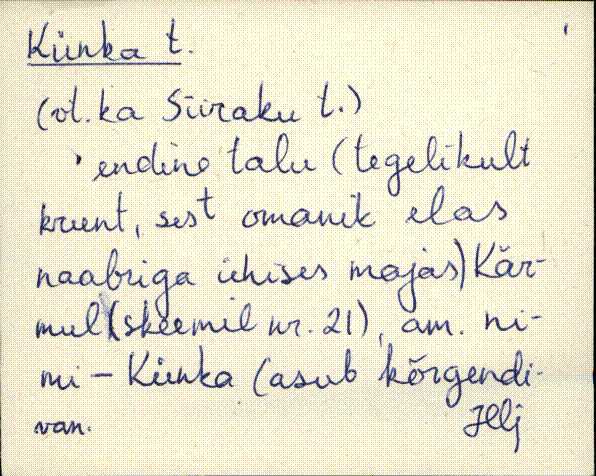 Künka t.
(vt. ka Siiraku t.)
endine talu (tegelikult
krunt, sest omanik elas
naabriga ühises majas) Kär-
mul (skeemil nr. 21), am. ni-
mi - Künka (asub kõrgendi-
van. Hlj